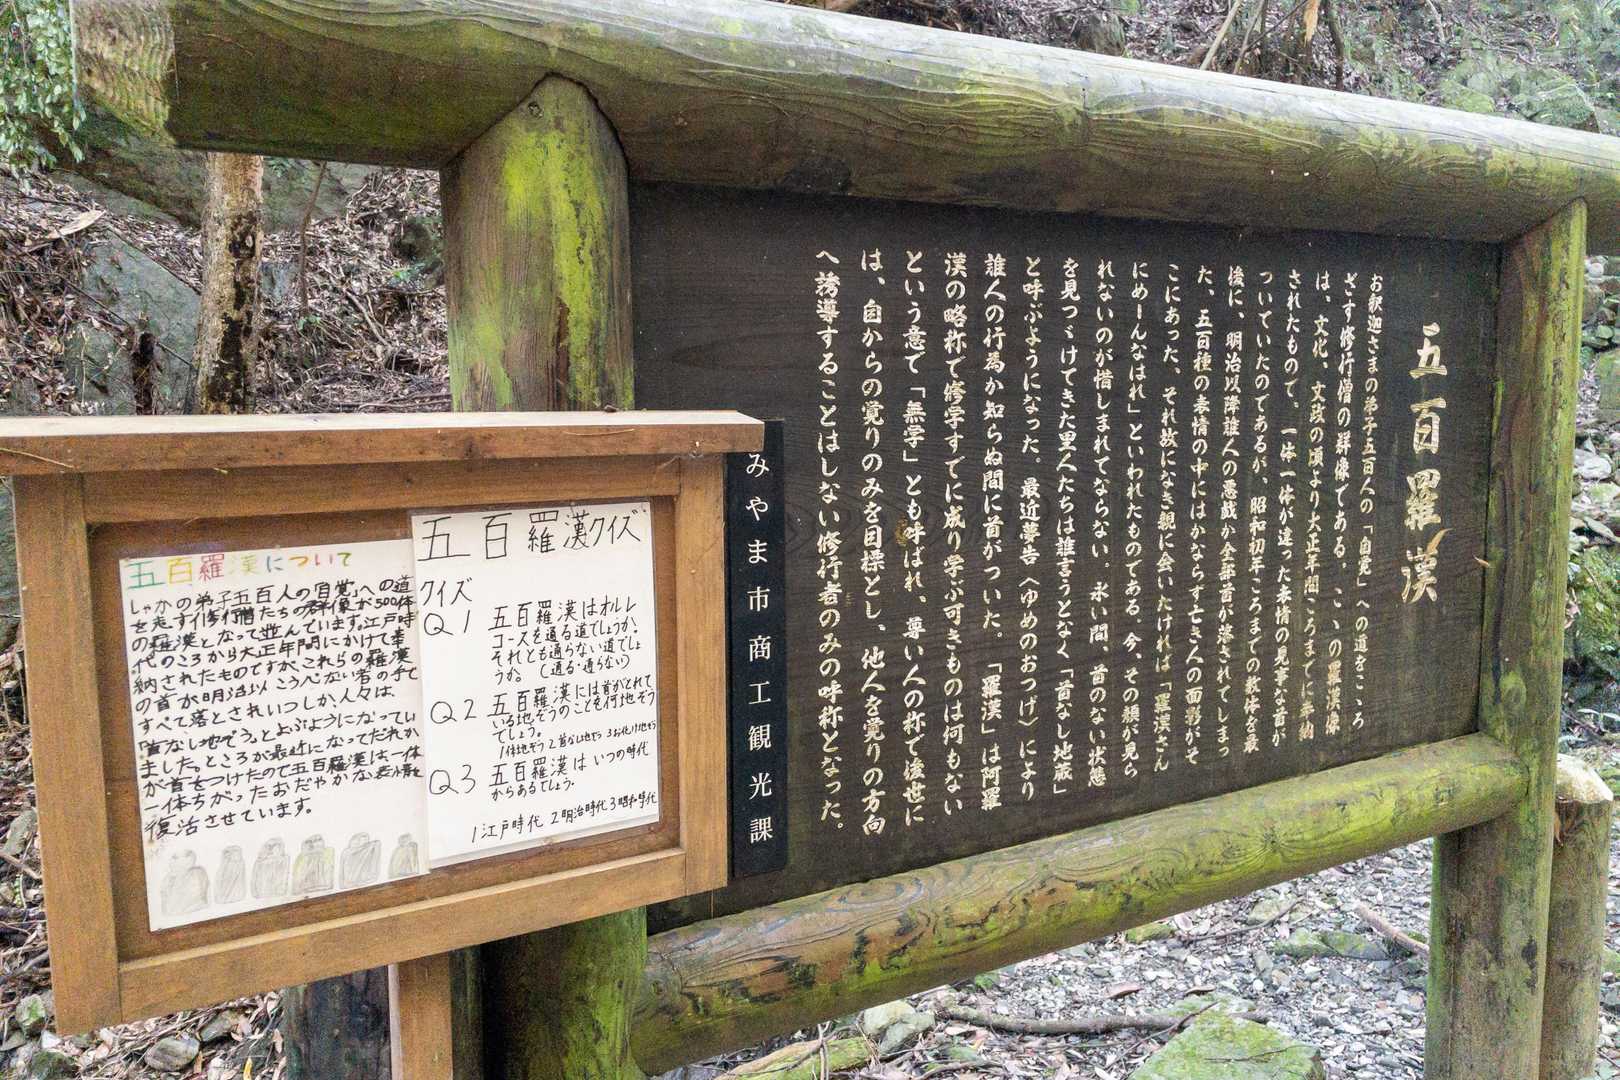 五百羅漢
お釈迦さまの弟子五百人の「自覚」への道をこころ
ざす修行僧の群像である。こゝの羅漢像
は、文化、文政の頃より大正年間ころまでに奉納
されたもので、一体一体が違った表情の見事な首が
ついていたのであるが、昭和初年ころまでの数体を最
後に、明治以降誰人の悪戯か全部首が落されてしまっ
た、五百種の表情の中にはかならず亡き人の面影がそ
こにあった、それ故になき親に会いたければ「羅漢さん
にめーんなはれ」といわれたものである。今、その顔が見ら
れないのが惜しまれてならない。永い間、首のない状態
を見つゞけてきた里人たちは誰言うとなく「首なし地蔵」
と呼ぶようになった。最近夢告〈ゆめのおつげ〉により
誰人の行為か知らぬ間に首がついた。「羅漢」は阿羅
漢の略称で修学すでに成り学ぶ可きものは何もない
という意で「無学」とも呼ばれ、尊い人の称で後世に
は、自からの覚りのみを目標とし、他人を覚りの方向
へ誘導することはしない修行者のみの呼称となった。
みやま市商工観光課
五百羅漢について
しゃかの弟子五百人の「自覚」への道
を志す修行僧たちの群像が500体
の羅漢となって並んでいます。江戸時
代のころから大正年間にかけて奉
納されたものですが、これらの羅漢
の首が明治以こう心ない者の手で
すべて落とされいつしか、人々は
「首なし地ぞう」とよぶようになってい
ました。ところが最近になってだれか
が首をつけたので五百羅漢は一体
一体ちがったおだやかな表情を
復活させています。
五百羅漢クイズ
クイズ
Q1 五百羅漢はオルレ
コースを通る道でしょうか。
それとも通らない道でしょ
うか。(通る・通らない)
Q2 五百羅漢には首がとれて
いる地ぞうのことを何地ぞう
でしょう。
1体地ぞう 2首なし地ぞう 3お化け地ぞう
Q3 五百羅漢はいつの時代
からあるでしょう。
1江戸時代 2明治時代 3昭和時代